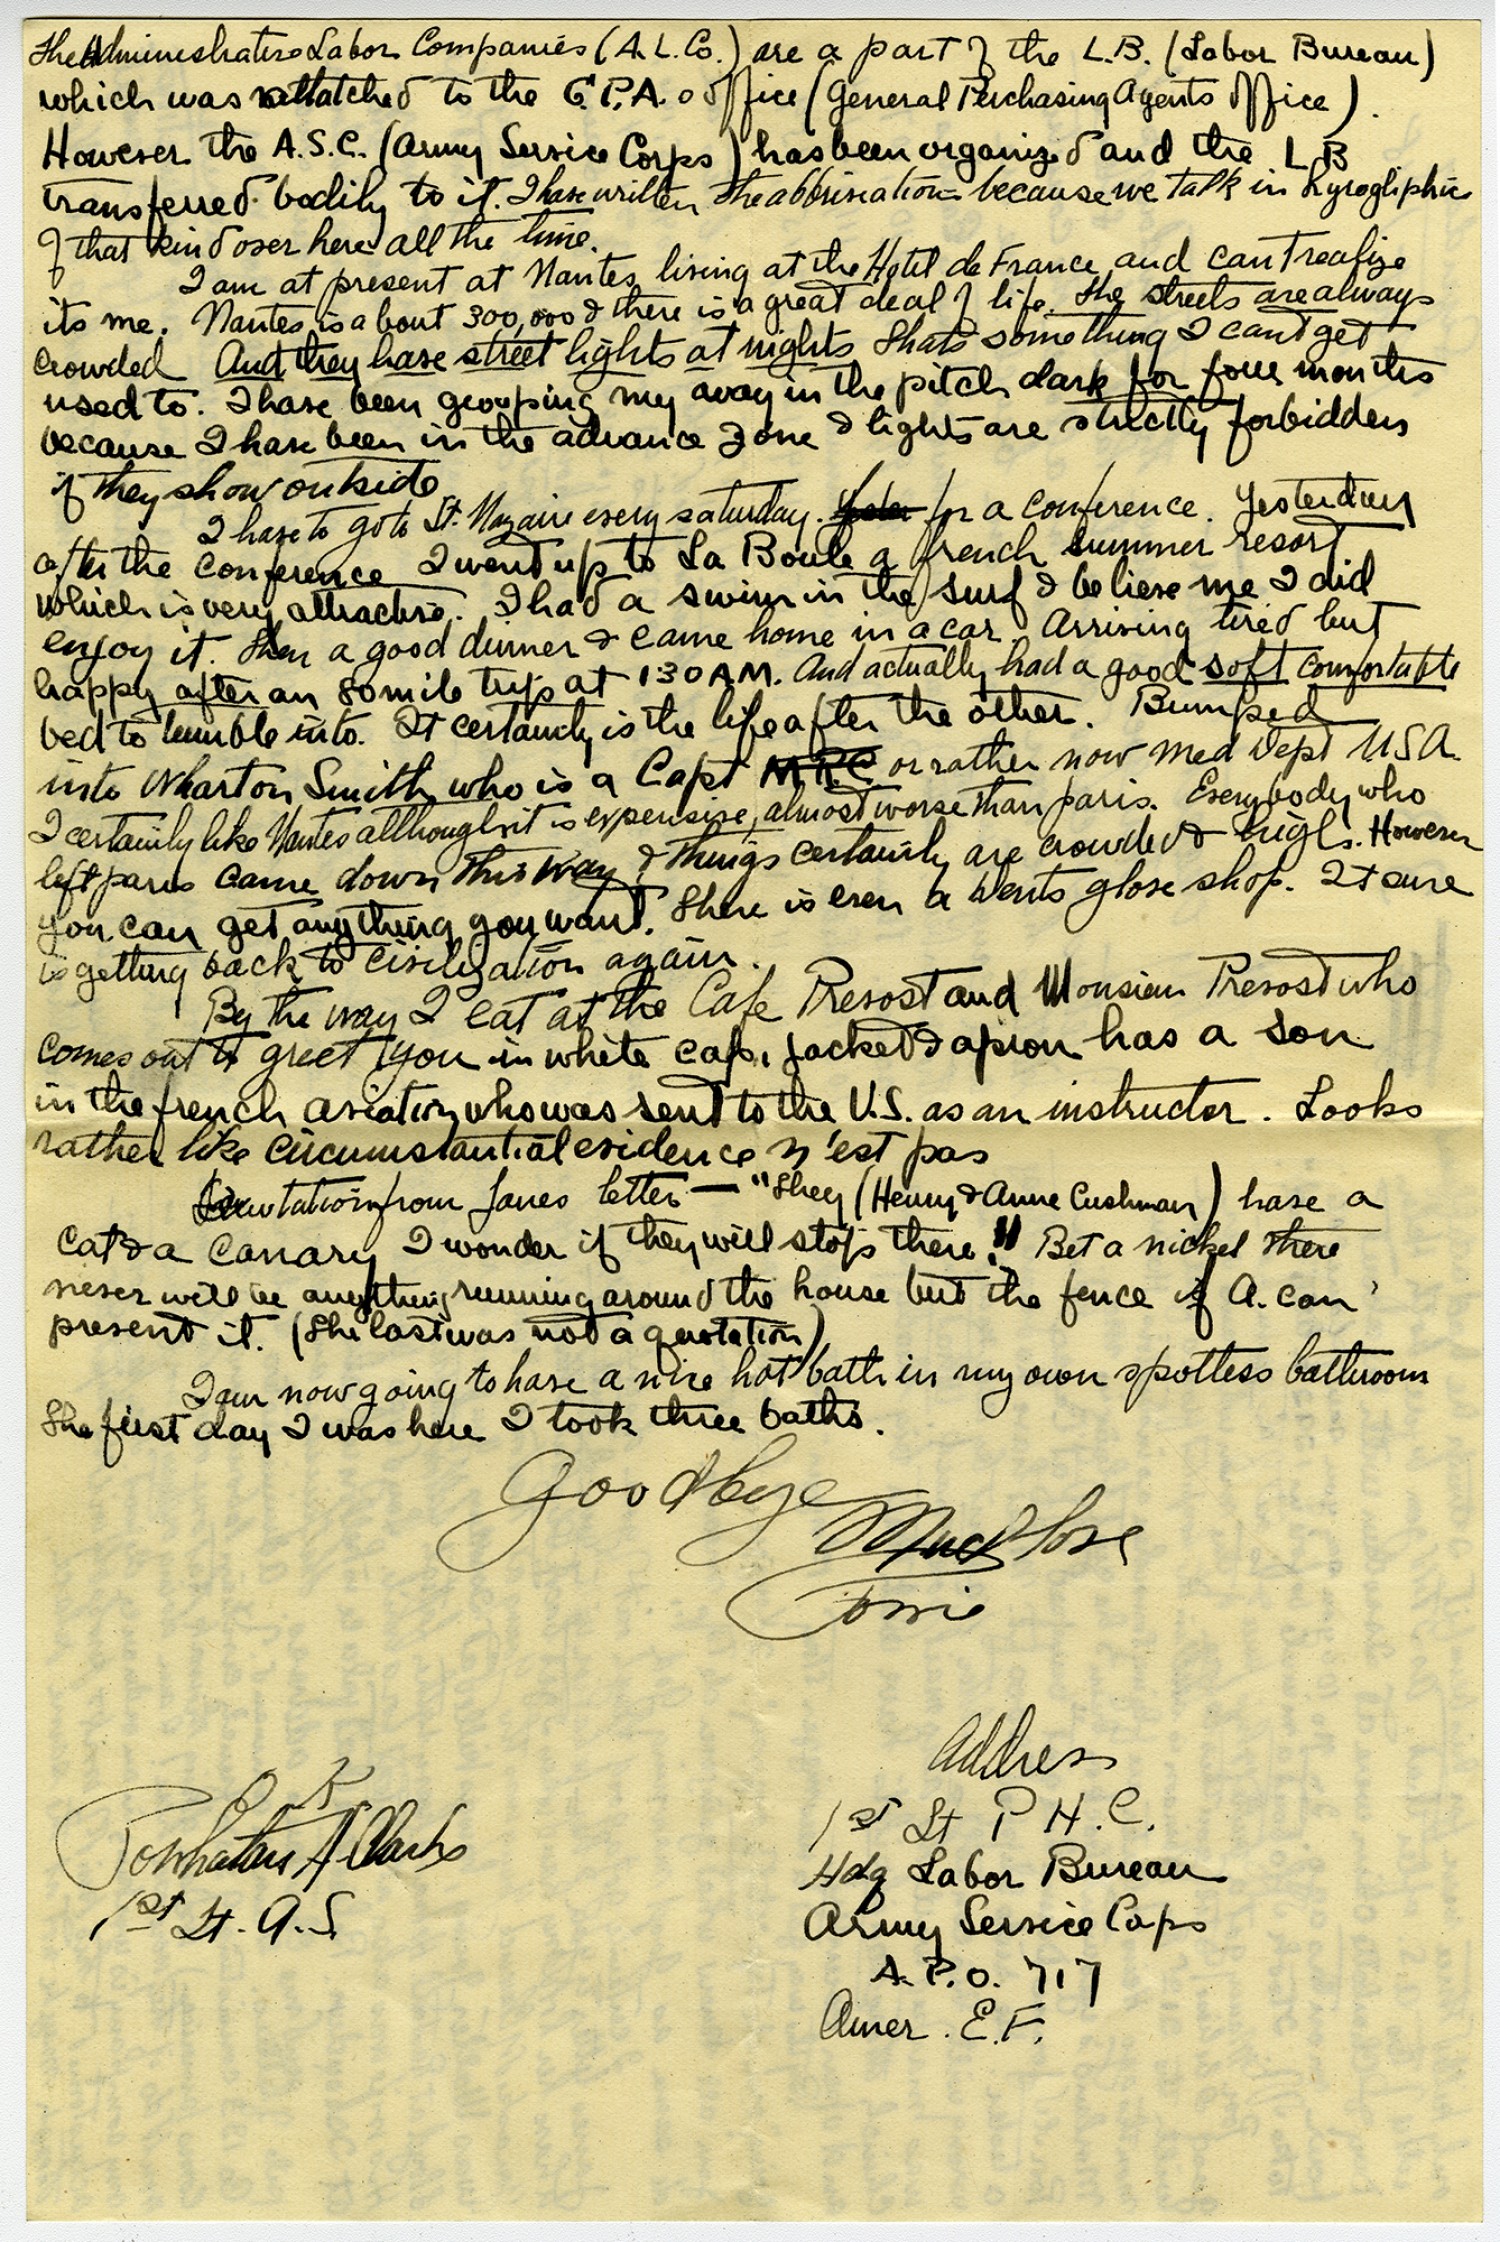 The Administrative Labor Companies (A.L.Co.) are a part of the L.B. (Labor Bureau)
which was attatched to the G.P.A. office (General Purchasing Agents Office).
However the A.S.C. (Army Service Corps) has been organized and the L B
transferred bodily to it. I have written the abbriviations because we talk in hyrogliphics
of that kind over here all the time.
I am at present at Nantes living at the Hotel de France and cant realize
its me. Nantes is about 300,000 & there is a great deal of life. The streets are always
crowded And they have street lights at nights Thats something I cant get
used to. I have been grouping my away in the pitch dark for four months
because I have been in the advance zone & lights are strictly forbidden
if they show outside
I have to go to St. Nazaire every saturday. for a conference. Yesterday
after the conference I went up to La Boule a french summer resort
which is very attractive. I had a swim in the surf & believe me I did
enjoy it. Then a good dinner & came home in a car. Arriving tired but
happy after an 80 mile trip at 130 AM. And actually had a good soft comfortable
bed to tumble into. It certainly is the life after the other. Bumped
into Wharton Smith who is a Capt M.R.C or rather now Med Dept USA.
I certainly like Nantes allthough it is expensive, almost worse than paris. Everybody who
left paris came down this way & things certainly are crowded & high. However
you can get anything you want. There is even a Dents glove shop. It sure
is getting back to civilization again.
By the way I eat at the Cafe Prevost and Monsieur Prevost who
comes out to greet you in white cap, jacket & apron has a son
in the french aviation who was sent to the U.S. as an instructor. Looks
rather like circumstantial evidence n'est pas
Quotation from Janes letter — "They (Henry & Anne Cushman) have a
cat & a canary I wonder if they will stop there." Bet a nickel there
never will be anything running around the house but the fence if A. can
present it. (The last was not a quotation)
I am now going to have a nice hot bath in my own spotless bathroom
The first day I was here I took three baths.
Goodbye
Much love
Powie
Address
1st Lt P H. C.
Hdq Labor Bureau
Army Service Corps
A.P.O. 717
Amer. E.F.
O K
Powhatan H Clarke
1st Lt. A.S